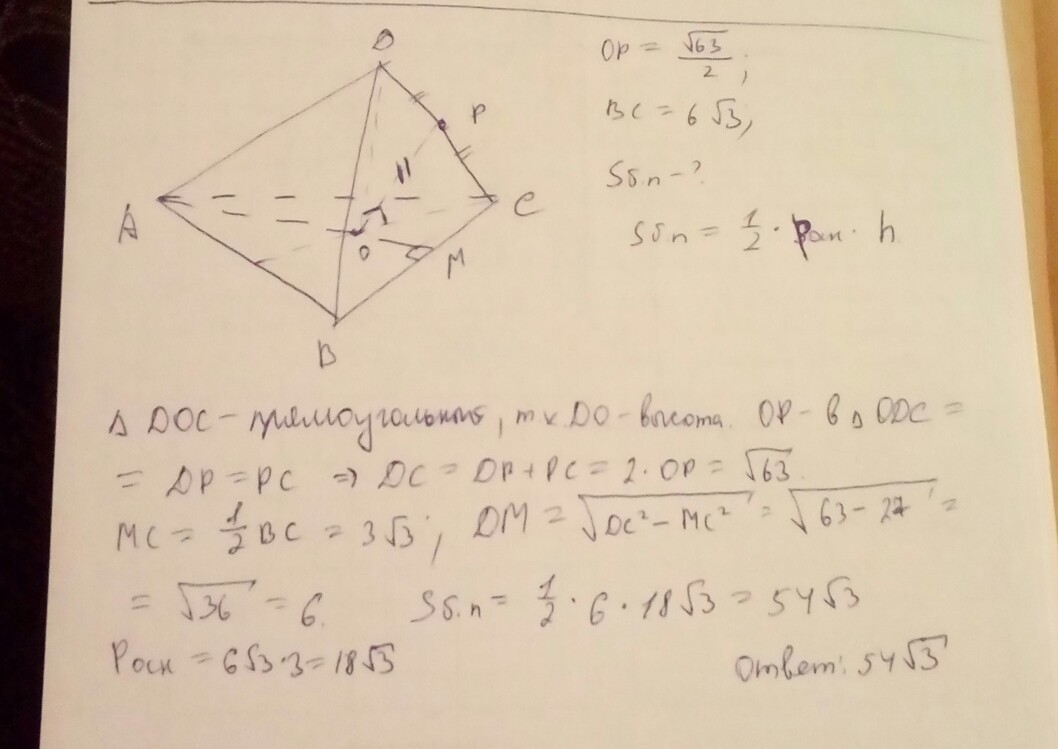 D
P
H
A
C
O
M
B
OP = √63/2;
BC = 6√3;
Sбп - ?
Sбп = 1/2 · Pосн · h
Δ DOC - прямоугольный, т.к. DO - высота. OP - в Δ ODC =
= DP = PC ⇒ DC = DP + PC = 2 · OP = √63.
MC = 1/2 BC = 3√3; DM = √(DC² - MC²) = √(63 - 27) =
= √36 = 6. Sб.п = 1/2 · 6 · 18√3 = 54√3
Pосн = 6√3·3 = 18√3 Ответ: 54√3